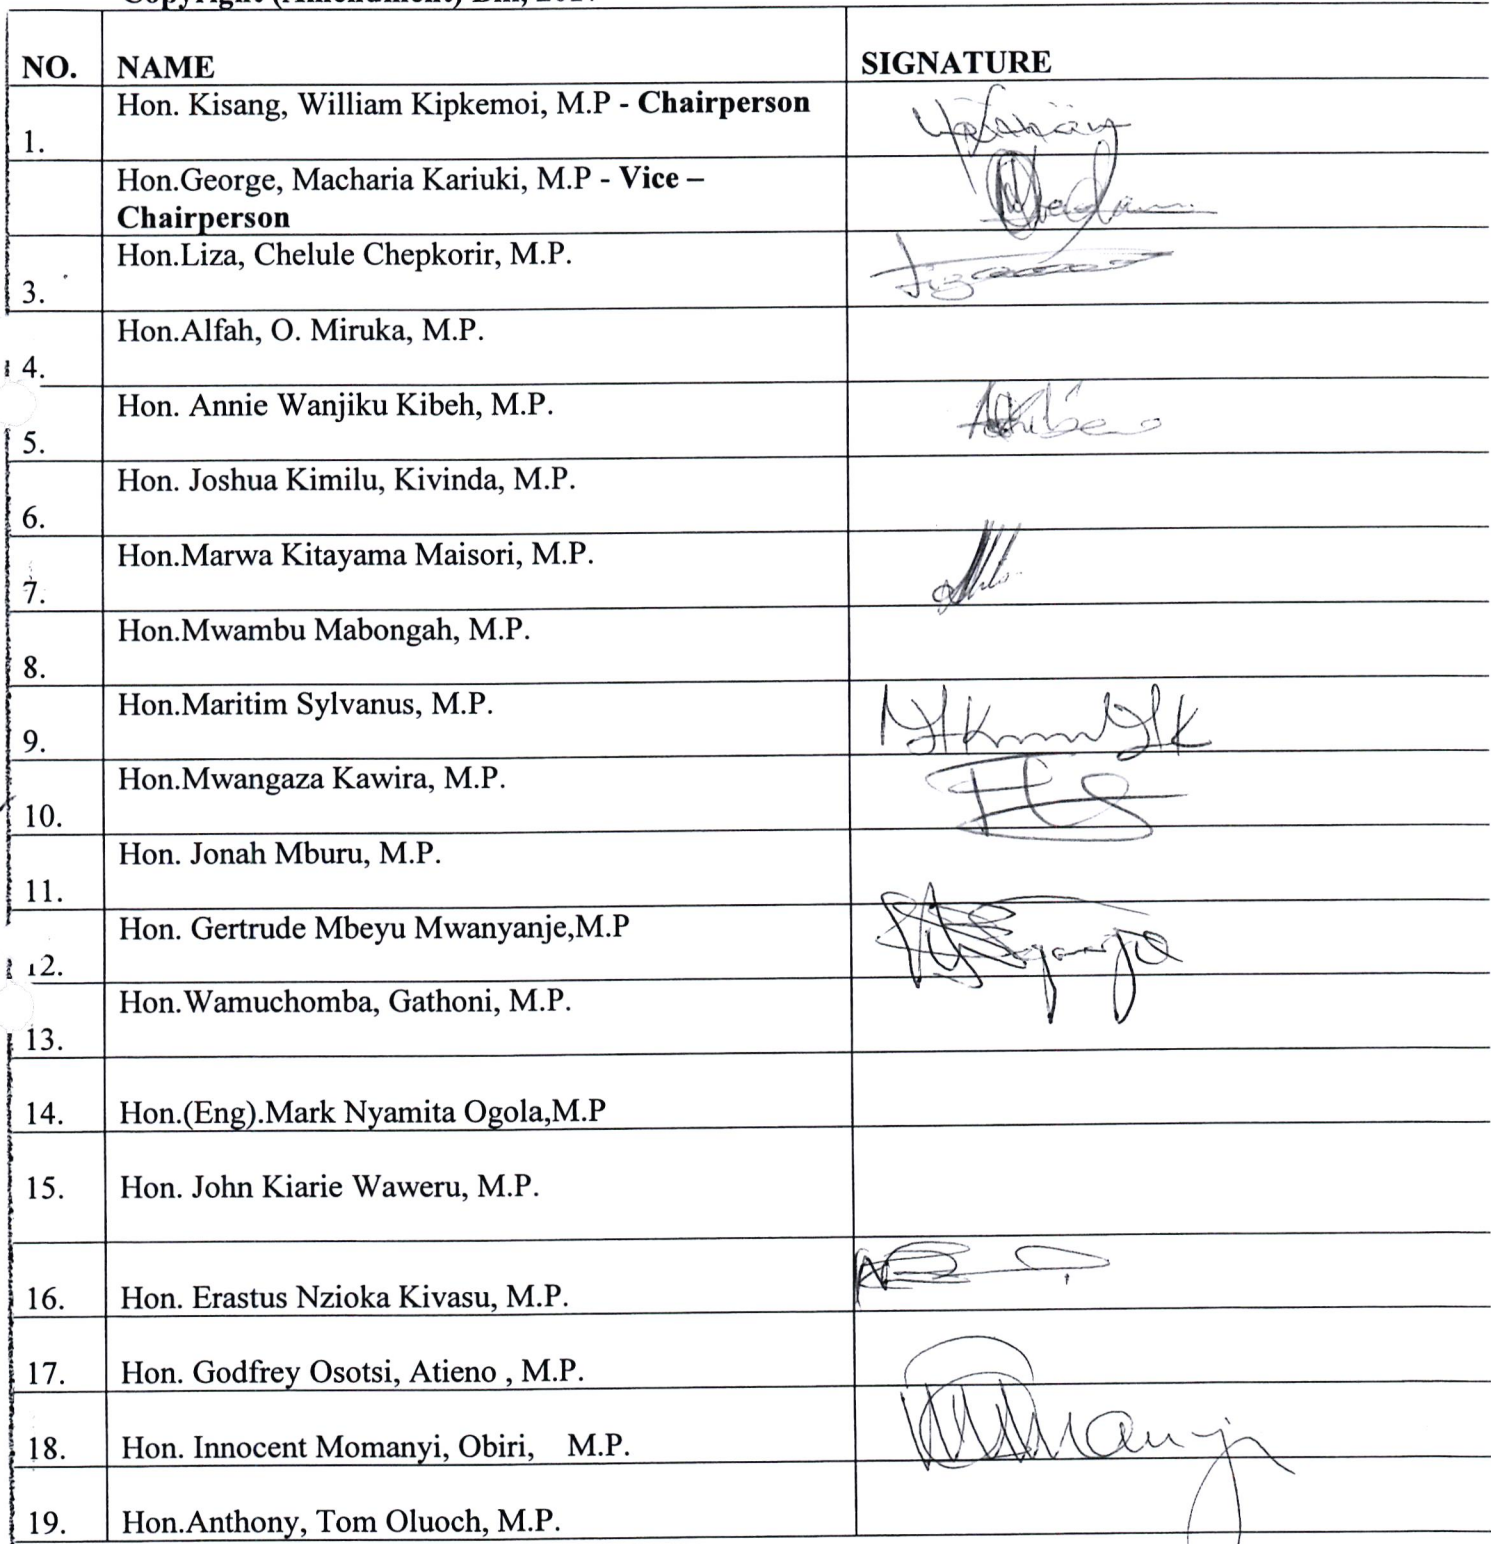 Copyright (Amendment) Bill,
NO. NAME SIGNATURE
1. Hon. Kisang, William Kipkemoi, M.P - Chairperson
Hon.George, Macharia Kariuki, M.P - Vice –
Chairperson
3. Hon.Liza, Chelule Chepkorir, M.P.
4. Hon.Alfah, O. Miruka, M.P.
5. Hon. Annie Wanjiku Kibeh, M.P.
6. Hon. Joshua Kimilu, Kivinda, M.P.
7. Hon.Marwa Kitayama Maisori, M.P.
8. Hon.Mwambu Mabongah, M.P.
9. Hon.Maritim Sylvanus, M.P.
10. Hon.Mwangaza Kawira, M.P.
11. Hon. Jonah Mburu, M.P.
12. Hon. Gertrude Mbeyu Mwanyanje,M.P
13. Hon.Wamuchomba, Gathoni, M.P.
14. Hon.(Eng).Mark Nyamita Ogola,M.P
15. Hon. John Kiarie Waweru, M.P.
16. Hon. Erastus Nzioka Kivasu, M.P.
17. Hon. Godfrey Osotsi, Atieno , M.P.
18. Hon. Innocent Momanyi, Obiri, M.P.
19. Hon.Anthony, Tom Oluoch, M.P.